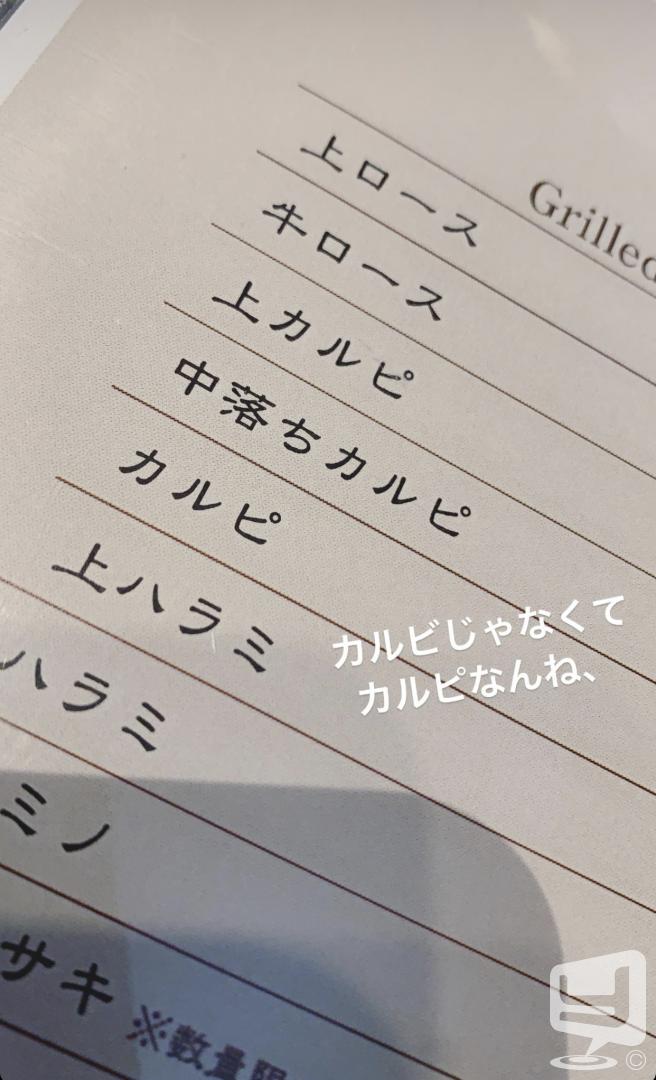 Grilled
上ロース
牛ロース
上カルピ
中落ちカルピ
カルピ
上ハラミ
ハラミ
ミノ
サキ ※数量限
カルビじゃなくて
カルピなんね、
©